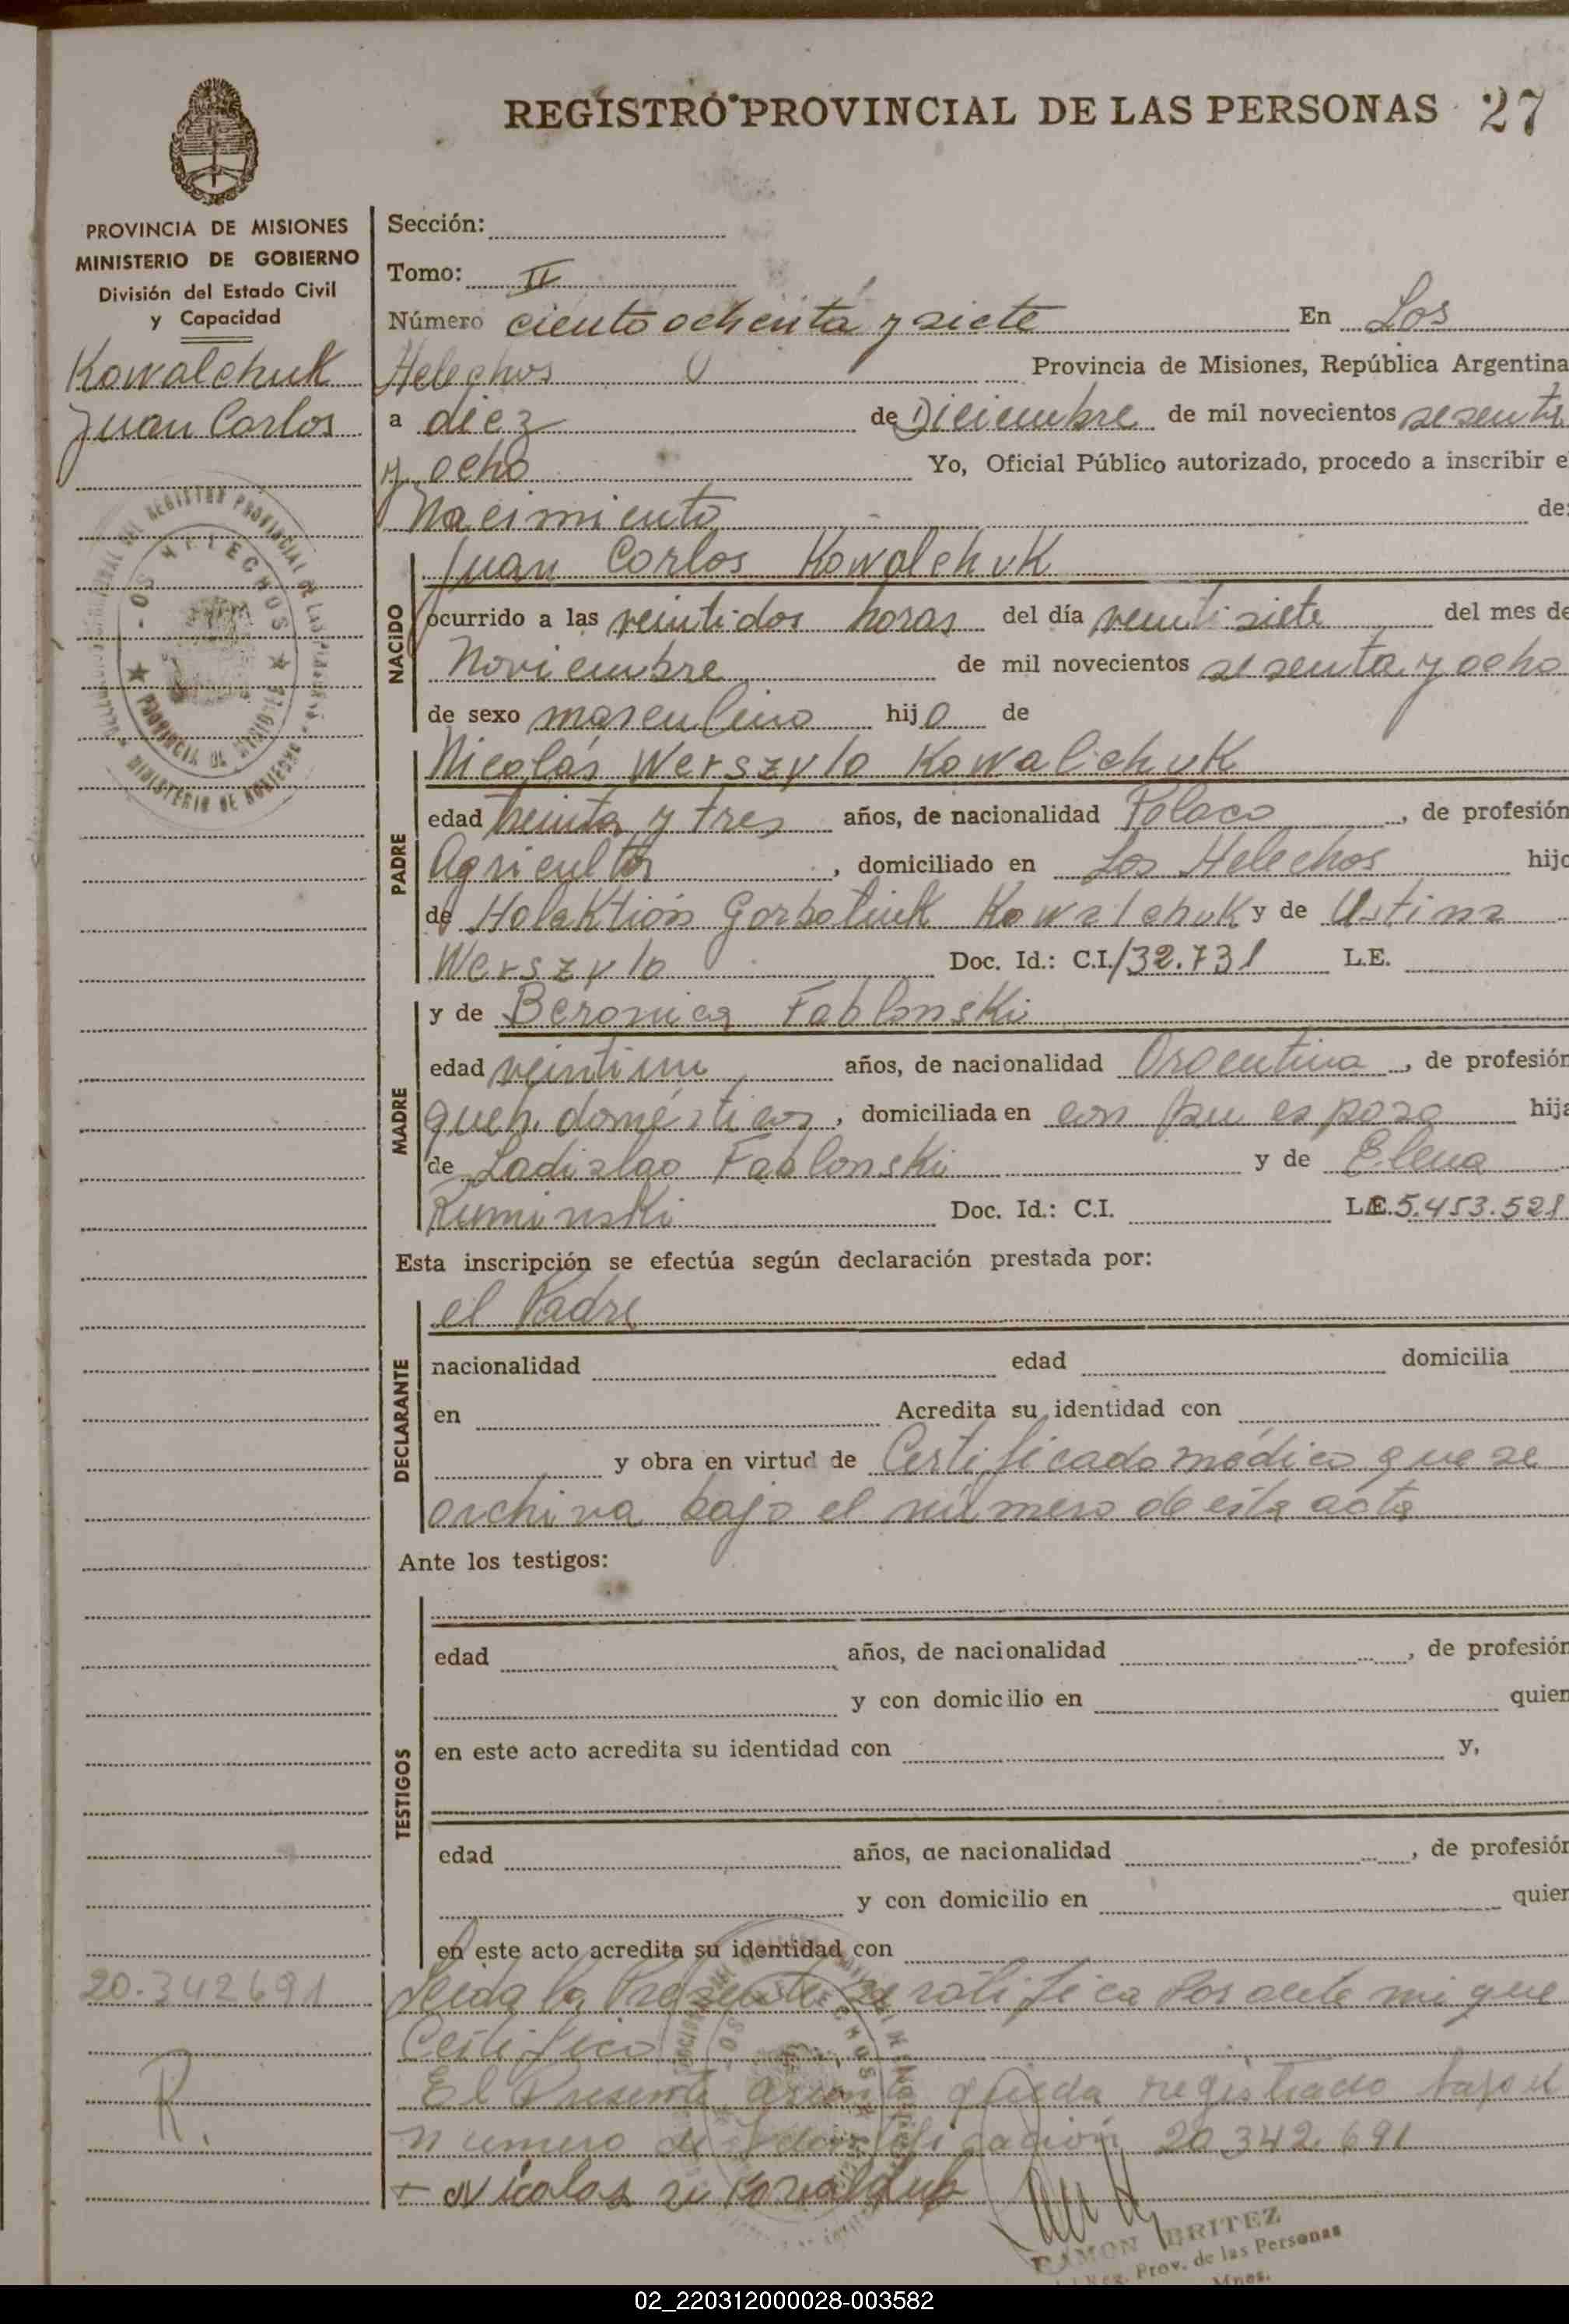 REGISTRO PROVINCIAL DE LAS PERSONAS 27
PROVINCIA DE MISIONES
MINISTERIO DE GOBIERNO
División del Estado Civil
y Capacidad
Kowalchuk
Juan Carlos
Sección:
Tomo: II
Número ciento ochenta y siete En Los
Helechos Provincia de Misiones, República Argentina
a diez de Diciembre de mil novecientos sesenta
y ocho Yo, Oficial Público autorizado, procedo a inscribir e
Nacimiento de:
NACIDO
Juan Carlos Kowalchuk
ocurrido a las veintidos horas del día veintisiete del mes de
Noviembre de mil novecientos sesenta y ocho
de sexo masculino hijo de
PADRE
Nicolás Werszylo Kowalichuk
edad treinta y tres años, de nacionalidad Polaco, de profesión
Agricultor, domiciliado en Los Helechos hijo
de Holaktión Gorbatiuk Kowalchuk y de Ustina
Werszylo Doc. Id.: C.I. 132.731 L.E.
MADRE
y de Beronica Fablonski
edad veintiun años, de nacionalidad Argentina, de profesión
queh. domésticos, domiciliada en con su esposo hija
de Ladislao Fablonski y de Elena
Kuminski Doc. Id.: C.I. L.E. 5.453.521
Esta inscripción se efectúa según declaración prestada por:
DECLARANTE
el Padre
nacionalidad edad domicilia
en Acredita su identidad con
y obra en virtud de Certificado médico que se
archiva bajo el número de esta acta
Ante los testigos:
TESTIGOS
edad años, de nacionalidad , de profesión
y con domicilio en quien
en este acto acredita su identidad con y,
edad años, de nacionalidad , de profesión
y con domicilio en quien
en este acto acredita su identidad con
20.342691
R.
Leida la Presente se ratifica Los ante mi que
Certifico
El Presente asiento queda registrado bajo el
numero de identificación 20.342.691
+ Nicolas
RAMON BRITEZ
Reg. Prov. de las Personas
Mnes.
LOS HELECHOS
PROVINCIA DE MISIONES
MINISTERIO DE GOBIERNO
02_220312000028-003582